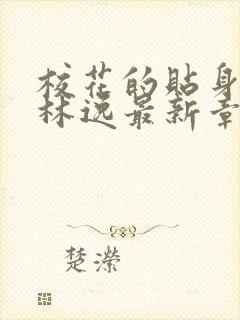 校花的贴身
林逸最新章
楚濴